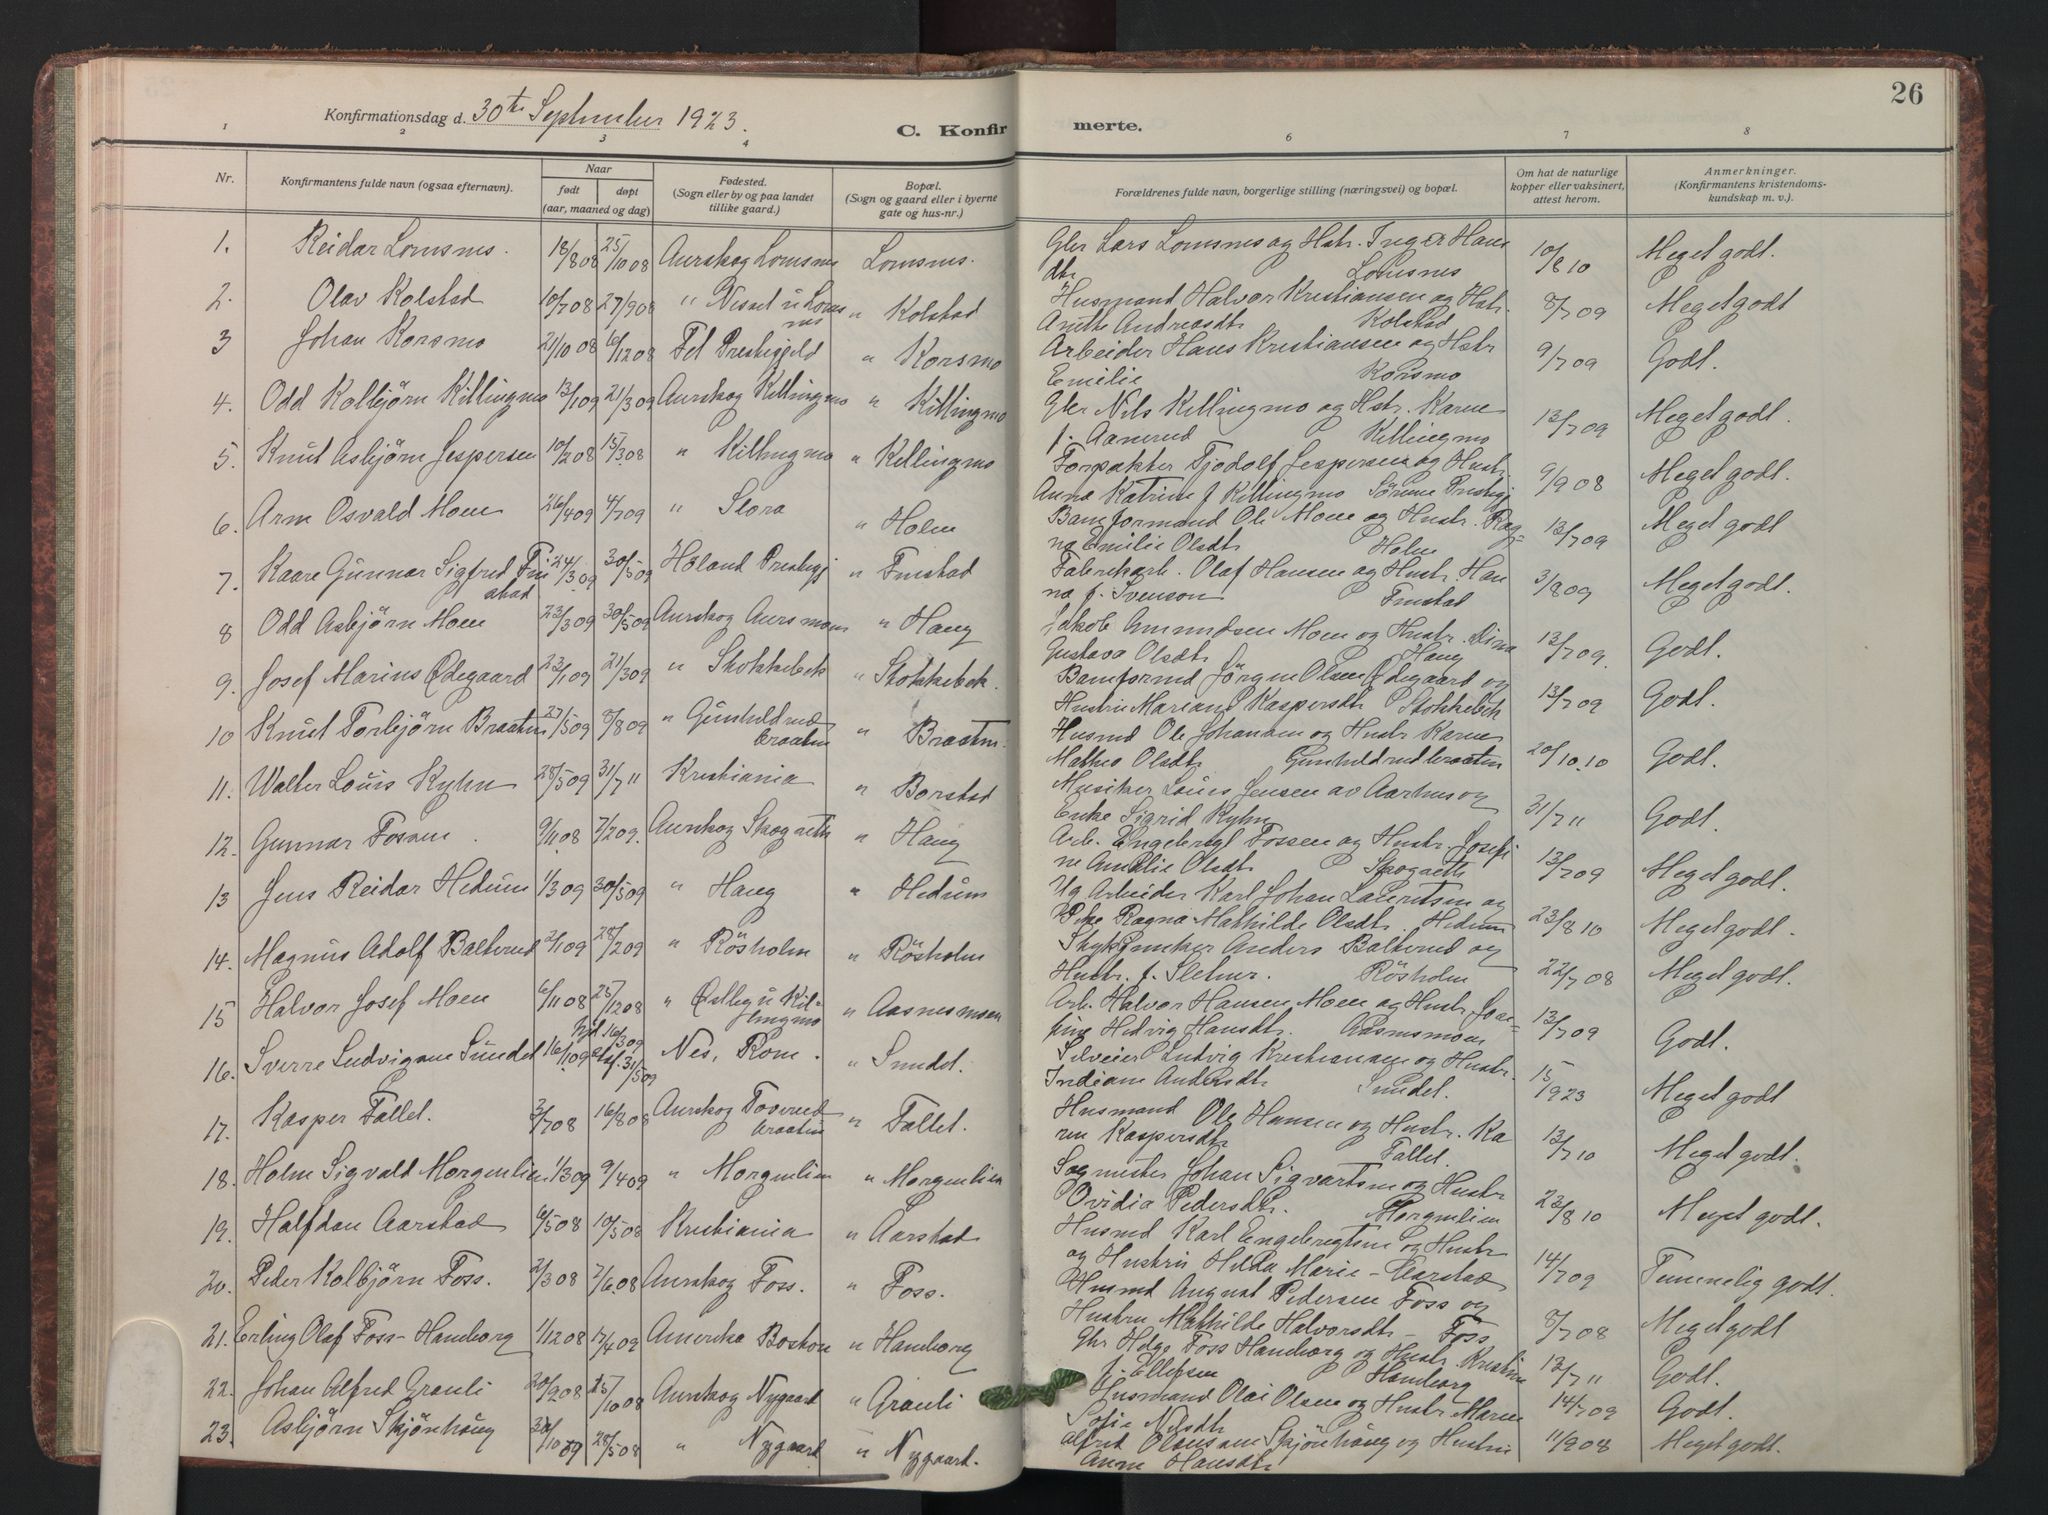 26
Konfirmationsdag d. 30te September 1923.
C. Konfirmerte.
1 2 3 4 6 7 8
Nr. Konfirmantens fulde navn (ogsaa efternavn). Naar født døpt (aar, maaned og dag) Fødested. (Sogn eller by og paa landet tillike gaard.) Bopæl. (Sogn og gaard eller i byerne gate og hus-nr.) Forældrenes fulde navn, borgerlige stilling (næringsvei) og bopæl. Om hat de naturlige kopper eller vaksinert, attest herom. Anmerkninger. (Konfirmantens kristendomskundskap m. v.).
1. Reidar Lomsnes. 18/8 08 25/10 08 Aurskog Lomsnes Lomsnes. Gbr Lars Lomsnes og Hstr. Inger Hans 10/8 10 Meget godt.
dtr Lomsnes
2. Olav Kolstad 10/7 08 27/9 08 " Kolstad Husmand Halvor Kristiansen og Hstr. 8/7 09 Meget godt
Anette Andreasdtr Kolstad
3 Johan Korsmo 21/10 08 6/12 08 Fet Prestegjeld " Korsmo Arbeider Hans Kristiansen og Hstr 9/7 09 Godt.
Emilie Korsmo
4. Odd Kolbjörn Killingmo 13/1 09 21/3 09 Aurskog Killingmo " Killingmo Gbr Nils Killingmo og Hstr. Karen 13/7 09 Meget godt.
f. Aanerud Killingmo
5. Knut Asbjörn Jespersen 10/2 08 15/3 08 " Killingmo " Killingmo Forpakter Tjodolf Jespersen og Hustr 9/9 08 Meget godt.
Anna Katrine f. Killingmo
6. Arne Osvald Moen 26/4 09 4/7 09 " Slora " Holm Baneformand Ole Moen og Hustr. Rag- 13/7 09 Meget godt
na Emilie Olsdtr Holm
7. Kaare Gunnar Sigfred Fin 24/3 09 30/5 09 Höland Prestegj " Finstad Fabrikarb. Olaf Hansen og Hustr. Han 3/8 09 Meget godt.
stad na f. Svenson Finstad
8 Odd Asbjörn Moen 23/3 09 30/5 09 Aurskog Aursmoen " Haug Jakob Amundsen Moen og Hustr. Dina 13/7 09. Godt.
Gustava Olsdtr Haug
9. Josef Marius Ødegaard 23/1 09 21/3 09 " Stokkebek " Stokkebek. Baneformd Jörgen Olsen Ødegaard og 13/7 09 Godt.
Hustru Mariane Kaspersdtr Stokkebek
10 Knut Torbjörn Braaten 27/5 09 8/8 09 " Gunhildrud " Braaten. Husmd Ole Johansen og Hustr Karen 20/10 10 Godt.
braaten Mathea Olsdtr Gunhildrudbraaten
11. Walter Louis Kyhn 28/5 09 31/7 11 Kristiania " Borstad Musiker Louis Jensen av Aarhus og 31/7 11 Godt.
Enke Sigrid Kyhn
12. Gunnar Fossen. 9/11 08 7/2 09. Aurskog " Haug Arb. Engebregt Fossen og Hustr. Josefi 13/7 09 Meget godt.
ne Amalie Olsdtr
13 Jens Reidar Hedum 1/3 09 30/5 09 " Haug " Hedum Ug Arbeider Karl Johan Lauritsen og 23/8 10 Meget godt.
Pike Ragna Mathilde Olsdtr. Hedum
14. Magnus Adolf Balterud 2/1 09 28/2 09 " Rösholm " Rösholm Anders Balterud og 22/7 08 Meget godt.
Hustr. f. Sletner. Rösholm
15 Halvor Josef Moen 6/11 08 25/12 08 " Østby u Kil- " Aasnesmoen Arb. Halvor Hansen Moen og Hustr Jose- 13/7 09 Godt.
lingmo fine Hedvig Hansdtr. Aasnesmoen
16. Sverre Ludvigsen Sundet 16/1 09 hjd. 16/3 09 stsf. 31/5 09 Nes, Rom. " Sundet. Ludvig Kristiansen og Hustr. 15/9 23 Meget godt
Indiane Andersdtr Sundet.
17. Kasper Fallet. 3/7 08 16/8 08 Aurskog Toverud " Fallet. Husmand Ole Hansen og Hustr. Ka 13/7 10 Meget godt.
braaten ren Kaspersdtr Fallet.
18. Holm Sigvald Morgenlien 1/3 09 9/4 09 " Morgenlien " Morgenlien Sagmester Johan Sigvartsen og Hustr 23/8 10 Meget godt.
Ovidia Pedersdtr. Morgenlien
19. Halfdan Aarstad 6/5 08 10/5 08 Kristiania " Aarstad Husmd Karl Engebregtsen og Hustr 14/7 09 Temmelig godt.
og Hustru Hilda Marie - Aarstad
20. Peder Kolbjörn Foss. 2/3 08 7/6 08 Aurskog Foss. " Foss. Husmd August Pedersen Foss og 8/7 08 Meget godt
Hustru Mathilde Halvorsdtr - Foss
21. Erling Olaf Foss-Hamborg 1/12 08 17/4 09 Amerika Boston " Hamborg Gbr Helge Foss Hamborg og Hustr. Kristine 13/7 11 Godt.
f. Ellefsen Hamborg
22. Johan Alfred Grauli 20/9 08 25/10 08 Aurskog Nygaard " Grauli Husmand Olai Olsen og Hustr. Maren 14/7 09 Godt.
Sofie Nilsdtr
23. Asbjörn Skjönhaug 28/5 08 " Nygaard " Nygaard. Alfred Olaussen Skjönhaug og Hustru 11/9 08 Meget godt.
Anne Hansdtr